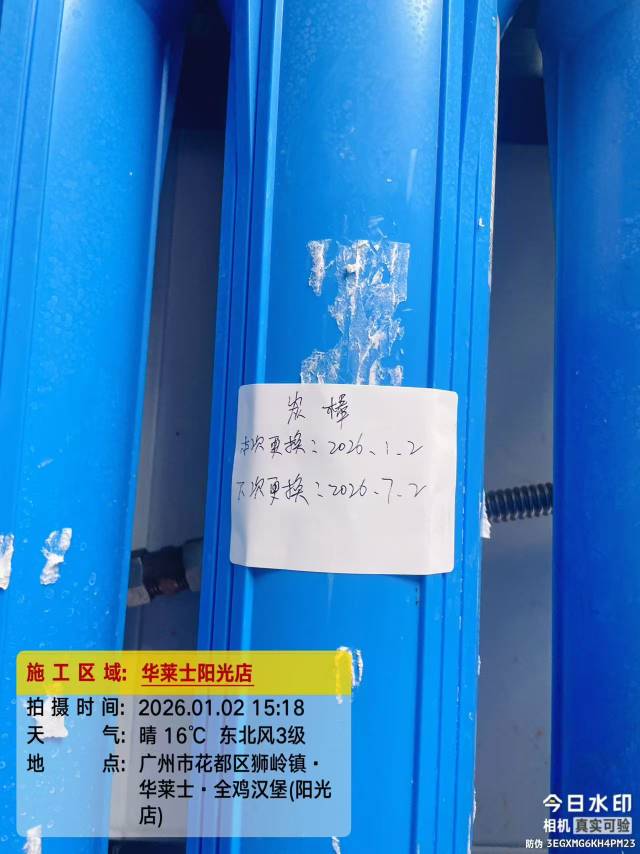 炭棒
本次更换：2026.1.2
下次更换：2026.7.2
施工区域：华莱士阳光店
拍摄时间：2026.01.02 15:18
天气：晴 16℃ 东北风3级
地点：广州市花都区狮岭镇·
华莱士·全鸡汉堡(阳光
店)
今日水印
相机 真实可验
防伪 3EGXMG6KH4PM23